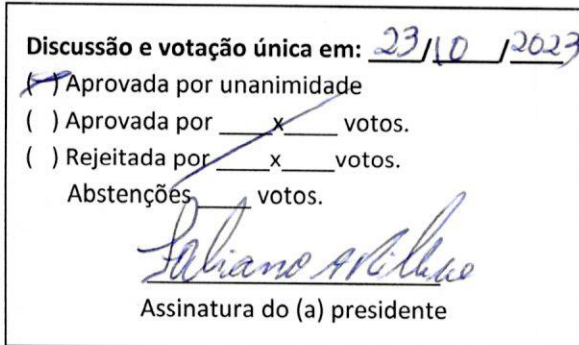 Discussão e votação única em: 23/10/2023
( ) Aprovada por unanimidade
( ) Aprovada por ____x____ votos.
( ) Rejeitada por ____x____votos.
Abstenções____ votos.
Fabiano A
Assinatura do (a) presidente